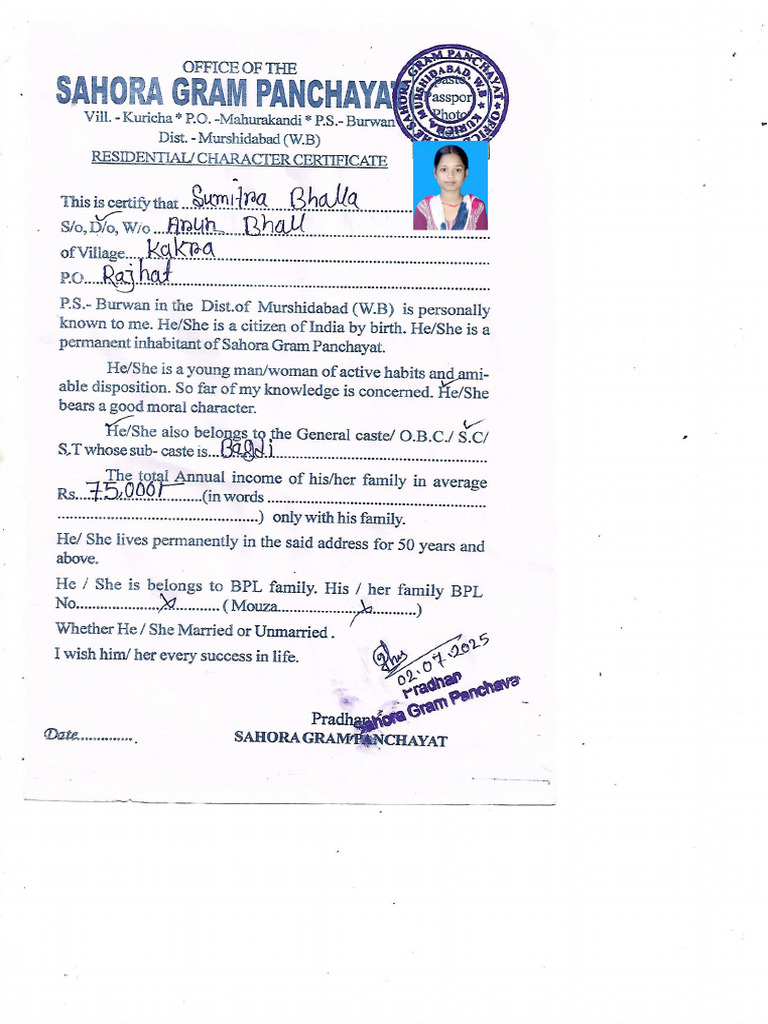 OFFICE OF THE
SAHORA GRAM PANCHAYAT
Vill. - Kuricha * P.O. -Mahurakandi * P.S.- Burwan
Dist. - Murshidabad (W.B)
RESIDENTIAL/ CHARACTER CERTIFICATE
Paste
Passpor
Photo
This is certify that Sumitra Bhalla
S/o, D/o, W/o Arun Bhall
of Village Kakra
P.O. Rajhat
P.S.- Burwan in the Dist.of Murshidabad (W.B) is personally
known to me. He/She is a citizen of India by birth. He/She is a
permanent inhabitant of Sahora Gram Panchayat.
He/She is a young man/woman of active habits and ami-
able disposition. So far of my knowledge is concerned. He/She
bears a good moral character.
He/She also belongs to the General caste/ O.B.C./ S.C/
S.T whose sub- caste is Bagdi
The total Annual income of his/her family in average
Rs. 75,000/ (in words
) only with his family.
He/ She lives permanently in the said address for 50 years and
above.
He / She is belongs to BPL family. His / her family BPL
No. x ( Mouza x )
Whether He / She Married or Unmarried .
I wish him/ her every success in life.
02.07.2025
Pradhan
Sahora Gram Panchaya
Pradhan
Date
SAHORA GRAM PANCHAYAT